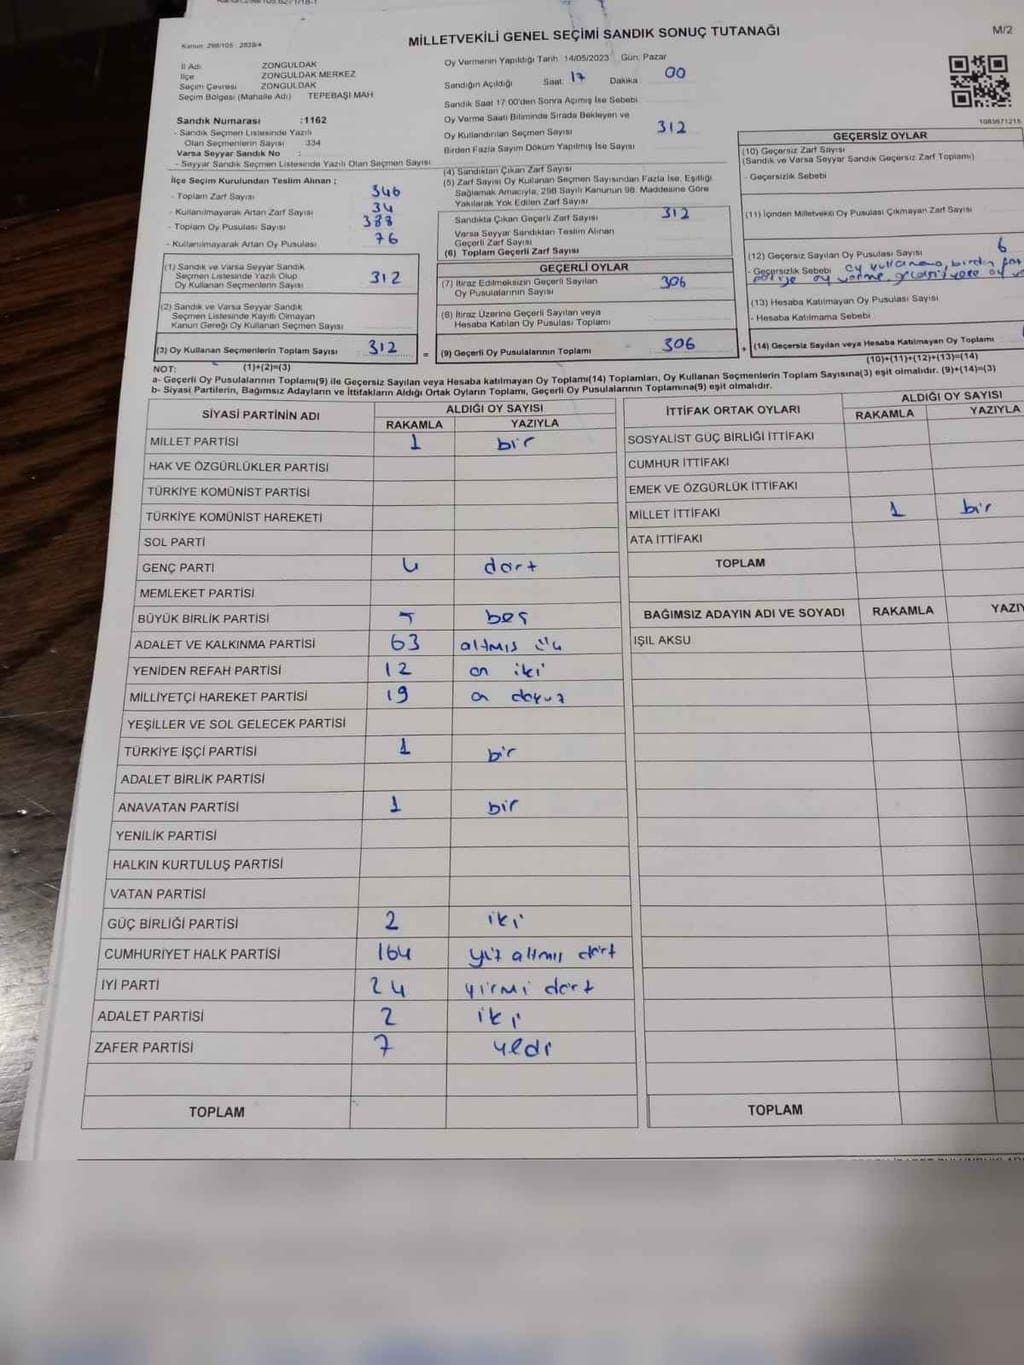 MİLLETVEKİLİ GENEL SEÇİMİ SANDIK SONUÇ TUTANAĞI
M/2
Kanun: 298/105 - 2839/4
İl Adı ZONGULDAK
İlçe ZONGULDAK MERKEZ
Seçim Çevresi ZONGULDAK
Seçim Bölgesi (Mahalle Adı) TEPEBAŞI MAH
Sandık Numarası :1162
- Sandık Seçmen Listesinde Yazılı
Olan Seçmenlerin Sayısı 334
Varsa Seyyar Sandık No :
- Seyyar Sandık Seçmen Listesinde Yazılı Olan Seçmen Sayısı
Oy Vermenin Yapıldığı Tarih 14/05/2023 Gün: Pazar
Sandığın Açıldığı Saat: 17 Dakika 00
Sandık Saat 17:00'den Sonra Açımış İse Sebebi
Oy Verme Saati Bitiminde Sırada Bekleyen ve
Oy Kullandırılan Seçmen Sayısı 312
Birden Fazla Sayım Döküm Yapılmış İse Sayısı
1083671215
İlçe Seçim Kurulundan Teslim Alınan :
- Toplam Zarf Sayısı 346
- Kullanılmayarak Artan Zarf Sayısı 34
- Toplam Oy Pusulası Sayısı 388
- Kullanılmayarak Artan Oy Pusulası 76
(1) Sandık ve Varsa Seyyar Sandık
Seçmen Listesinde Yazılı Olup
Oy Kullanan Seçmenlerin Sayısı 312
(2) Sandık ve Varsa Seyyar Sandık
Seçmen Listesinde Kayıtlı Olmayan
Kanun Gereği Oy Kullanan Seçmen Sayısı
(3) Oy Kullanan Seçmenlerin Toplam Sayısı 312
(4) Sandıktan Çıkan Zarf Sayısı
(5) Zarf Sayısı Oy Kullanan Seçmen Sayısından Fazla İse, Eşitliği
Sağlamak Amacıyla, 298 Sayılı Kanunun 98. Maddesine Göre
Yakılarak Yok Edilen Zarf Sayısı
Sandıkta Çıkan Geçerli Zarf Sayısı 312
Varsa Seyyar Sandıktan Teslim Alınan
Geçerli Zarf Sayısı
(6) Toplam Geçerli Zarf Sayısı
GEÇERLİ OYLAR
(7) İtiraz Edilmeksizin Geçerli Sayılan
Oy Pusulalarının Sayısı 306
(8) İtiraz Üzerine Geçerli Sayılan veya
Hesaba Katılan Oy Pusulası Toplamı
= (9) Geçerli Oy Pusulalarının Toplamı 306
GEÇERSİZ OYLAR
(10) Geçersiz Zarf Sayısı
(Sandık ve Varsa Seyyar Sandık Geçersiz Zarf Toplamı)
- Geçersizlik Sebebi
(11) İçinden Milletvekili Oy Pusulası Çıkmayan Zarf Sayısı
(12) Geçersiz Sayılan Oy Pusulası Sayısı 6
- Geçersizlik Sebebi oy kullanama, birden
oy verme, geçersiz yere oy
(13) Hesaba Katılmayan Oy Pusulası Sayısı
- Hesaba Katılmama Sebebi
+ (14) Geçersiz Sayılan veya Hesaba Katılmayan Oy Toplamı
NOT: (1)+(2)=(3) (10)+(11)+(12)+(13)=(14)
a- Geçerli Oy Pusulalarının Toplamı(9) ile Geçersiz Sayılan veya Hesaba katılmayan Oy Toplamı(14) Toplamları, Oy Kullanan Seçmenlerin Toplam Sayısına(3) eşit olmalıdır. (9)+(14)=(3)
b- Siyasi Partilerin, Bağımsız Adayların ve İttifakların Aldığı Ortak Oyların Toplamı, Geçerli Oy Pusulalarının Toplamına(9) eşit olmalıdır.
SİYASİ PARTİNİN ADI ALDIĞI OY SAYISI
RAKAMLA YAZIYLA
MİLLET PARTİSİ 1 bir
HAK VE ÖZGÜRLÜKLER PARTİSİ
TÜRKİYE KOMÜNİST PARTİSİ
TÜRKİYE KOMÜNİST HAREKETİ
SOL PARTİ
GENÇ PARTİ 4 dört
MEMLEKET PARTİSİ
BÜYÜK BİRLİK PARTİSİ 5 beş
ADALET VE KALKINMA PARTİSİ 63 altmış üç
YENİDEN REFAH PARTİSİ 12 on iki
MİLLİYETÇİ HAREKET PARTİSİ 19 on dokuz
YEŞİLLER VE SOL GELECEK PARTİSİ
TÜRKİYE İŞÇİ PARTİSİ 1 bir
ADALET BİRLİK PARTİSİ
ANAVATAN PARTİSİ 1 bir
YENİLİK PARTİSİ
HALKIN KURTULUŞ PARTİSİ
VATAN PARTİSİ
GÜÇ BİRLİĞİ PARTİSİ 2 iki
CUMHURİYET HALK PARTİSİ 164 yüz altmış dört
İYİ PARTİ 24 yirmi dört
ADALET PARTİSİ 2 iki
ZAFER PARTİSİ 7 yedi
TOPLAM
İTTİFAK ORTAK OYLARI ALDIĞI OY SAYISI
RAKAMLA YAZIYLA
SOSYALİST GÜÇ BİRLİĞİ İTTİFAKI
CUMHUR İTTİFAKI
EMEK VE ÖZGÜRLÜK İTTİFAKI
MİLLET İTTİFAKI 1 bir
ATA İTTİFAKI
TOPLAM
BAĞIMSIZ ADAYIN ADI VE SOYADI RAKAMLA YAZIY
IŞIL AKSU
TOPLAM